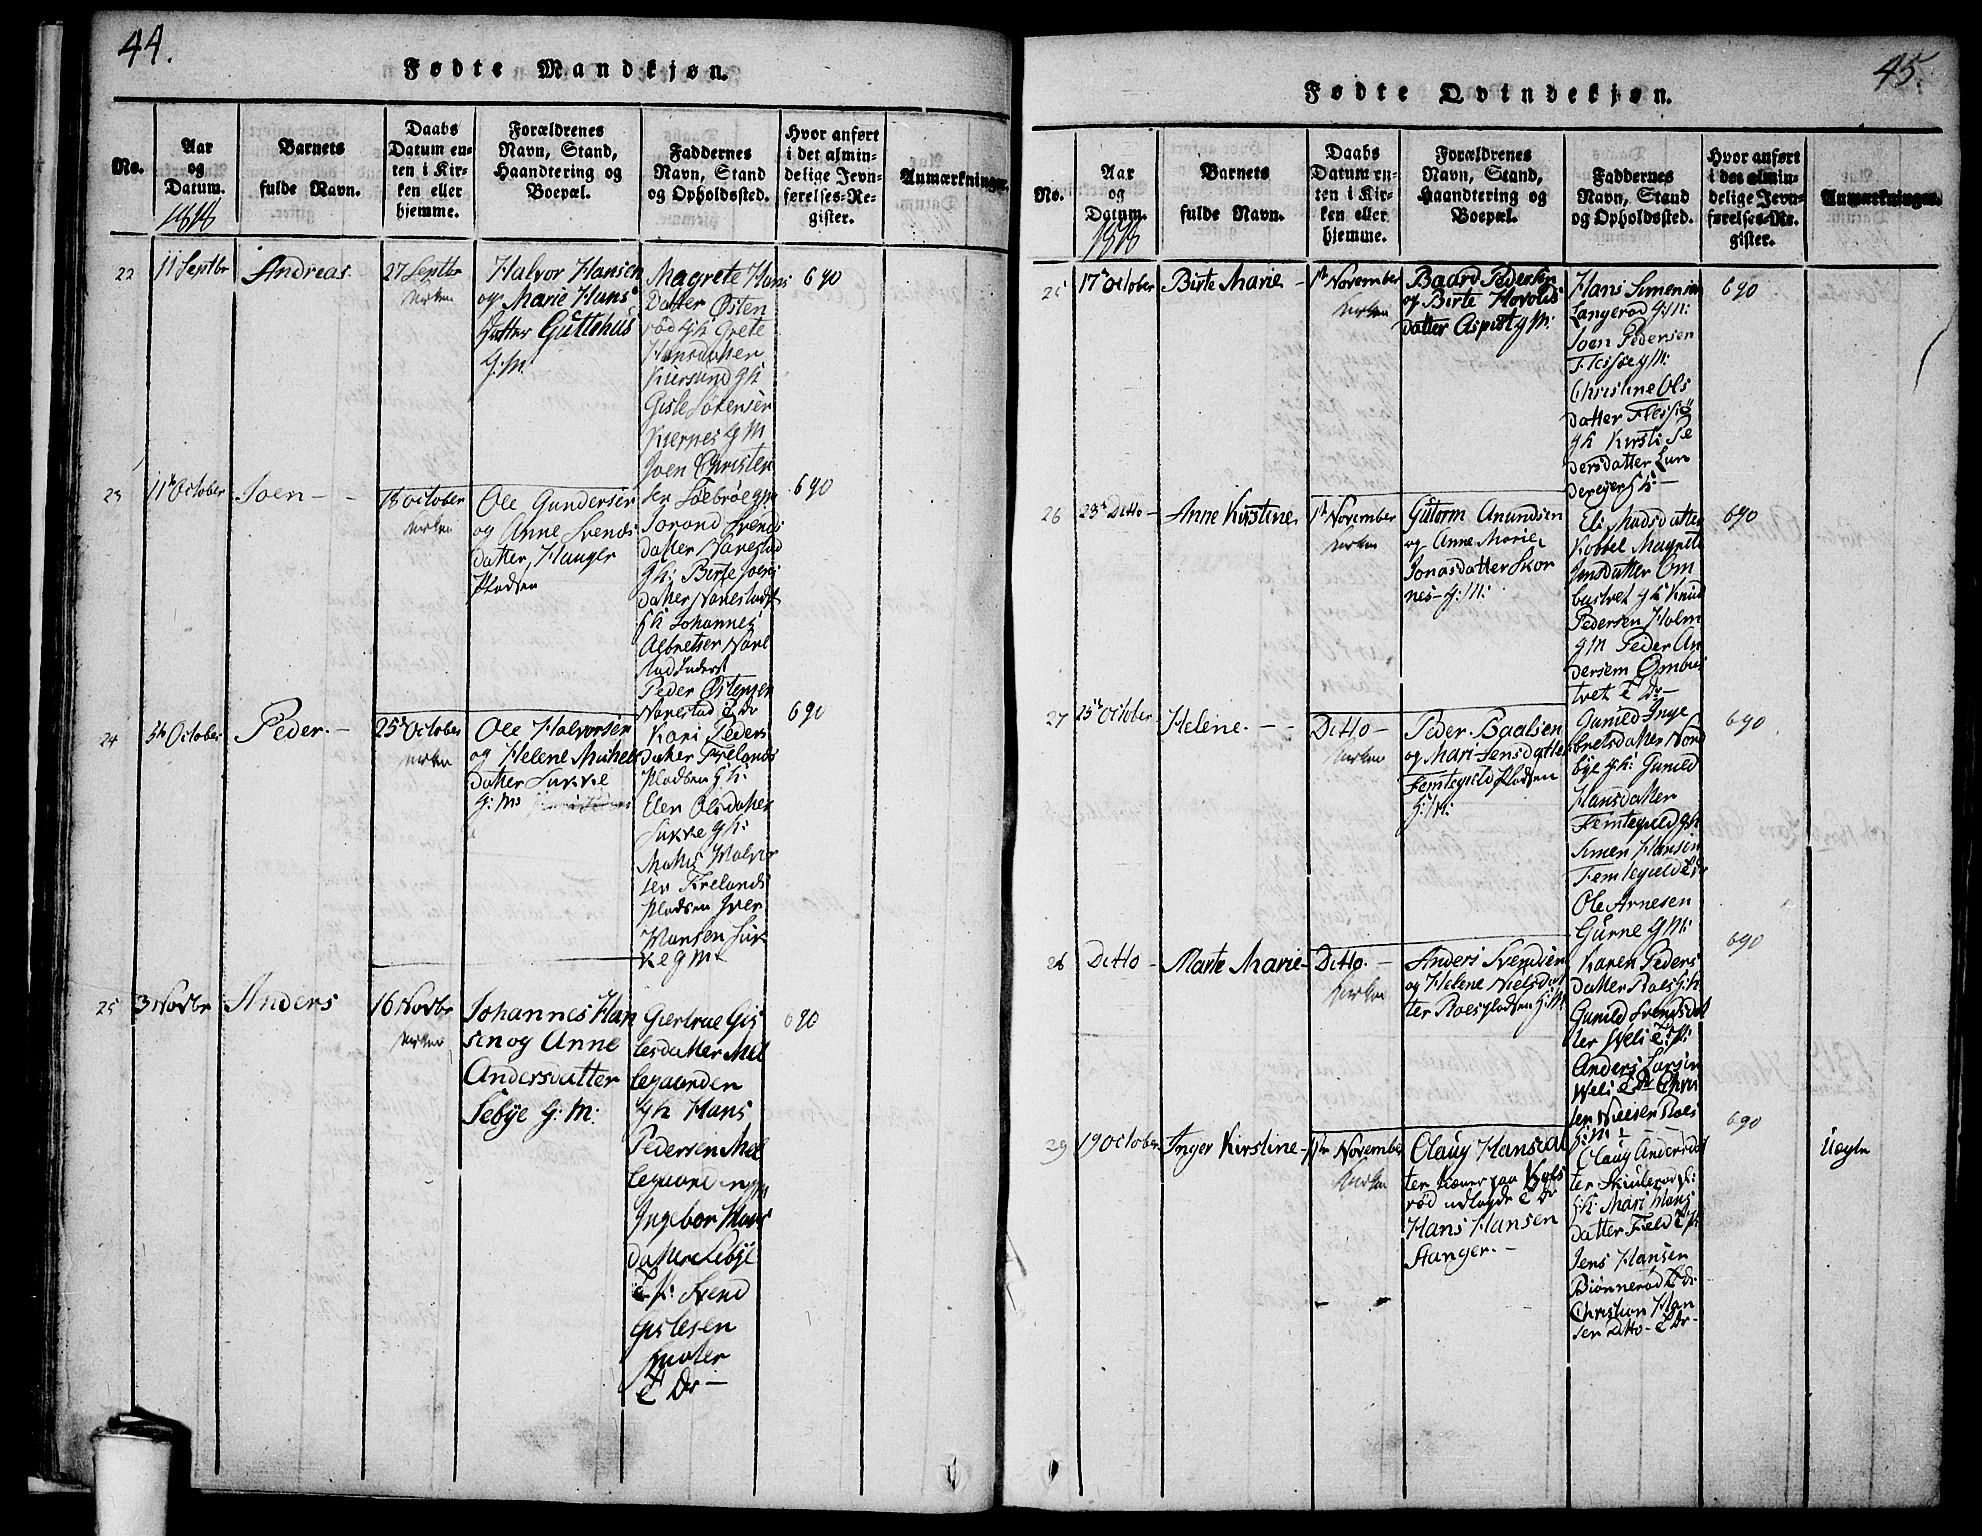 44.
Fødte Mandkjøn.
No.
Aar
og
Datum.
1818
Barnets
fulde Navn.
Daabs
Datum en-
ten i Kir-
ken eller
hjemme.
Forældrenes
Navn, Stand,
Haandtering og
Boepæl.
Faddernes
Navn, Stand
og Opholdssted.
Hvor anført
i det almin-
delige Jevn-
førelses-Re-
gister.
Anmærkninger.
22
11 Septbr
Andreas
27 Septbr
Kirken
Halvor Hansen
og Marie Hans
Datter Guttehus
G:M.
Magrete Hans
Datter Østen
rød g k Grete
Hansdatter
Kiersund g k
Gisle Sörensen
Kiernes g M
Joen Christen
sen Söebröe g m.
690
23
11te October
Joen - -
18 October
Kirken
Ole Gundersen
og Anne Svends
datter, Hauger
Pladsen
Jorond Svends
datter Narestad
g k: Birte Joens
datter Narestad
g k Johannes
Albretsen Nare
stad
Peder Østensen
Narestad E Dr
690
24
5te October
Peder. -
25de October
Kirken
Ole Halvorsen
og Helene Michels
datter Sukke
G: M:
Kari Peders
datter Frelands
Pladsen g k:
Elen Olsdatter
Sukke g k:
Mattis Halvor
sen Frelands
Pladsen Iver
Hansen Suk
ke g M
690
25
3 Novbr
Anders
16 Novbr
Kirken
Johannes Han
sen og Anne
Andersdatter
Sebye G: M:
Giertrue Gis
lesdatter Mel
legaarden
g k Hans
Pedersen Mel
legaarden g m
Ingebor Hans
datter Sebye
E p: Svend
Gislesen
Smaler
E Dr -
690
45.
Fødte Qvindekjøn.
No.
Aar
og
Datum.
1818
Barnets
fulde Navn.
Daabs
Datum en-
ten i Kir-
ken eller
hjemme.
Forældrenes
Navn, Stand,
Haandtering og
Boepæl.
Faddernes
Navn, Stand
og Opholdssted.
Hvor anført
i det almin-
delige Jevn-
førelses-Re-
gister.
Anmærkninger.
25
17de October
Birte Marie -
1te November
Kirken
Baard Pedersen
og Birte Hovolds
datter Aspist g M:
Hans Simensen
Langerød G:M:
Joen Pedersen
Flessie g M:
Christine Ols
datter Flessie
g k Kirsti Pe
dersdatter Lun
dereier g k: -
690
26
23de Ditto -
Anne Kirstine
1te November
Kirken
Gutorm Anundsen
og Anne Marie
Jonasdatter Skor
nes - g: M:
Eli Madsdatter
Kobbel Magrete
Jensdatter Om
bustvet g k Knud
Pedersen Holm
g M Peder An
dersen Ombus
tvet E Dr -
690
27
25de October
Helene. - -
Ditto -
Kirken
Peder Baalsen
og Mari Jensdatter
Femtegield Pladsen
G: M:
Gunild Inge
bretsdatter Nord
bye g k: Gunild
Hansdatter
Femtegield g k
Simen Hansen
Femtegield E Dr
Ole Arnesen
Gurne g M:
690
28
Ditto -
Marte Marie -
Ditto. -
Kirken
Anders Svendsen
og Helene Nielsdat
ter Roes pladsen G: M
Karen Peders
datter Roes g k
Gunild Svendsdat
ter Weli E P:
Anders Larsen
Weli E Dr Chris
ten Nielsen Roes
g: M: -
690
29
19 October
Inger Kirstine -
1te November
Kirken
Olaug Hansdat
ter Kiøner paa Kols
rød udlagde E Dr
Hans Hansen
Stanger. -
Olaug Andersdat
ter Skiulerød
g k: Mari Hans
datter Field E p:
Jens Hansen
Biønnerød E Dr
Christian Han
sen Ditto - E Dr -
690
Uægte